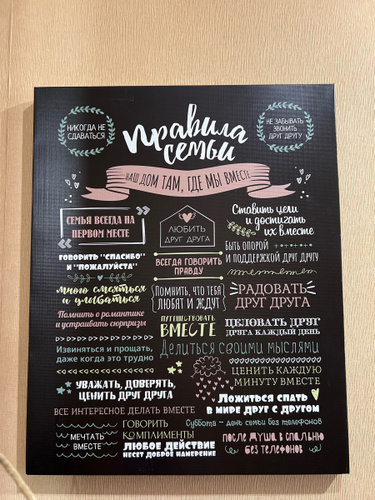 НИКОГДА НЕ
СДАВАТЬСЯ
Правила
семьи
НЕ ЗАБЫВАТЬ
ЗВОНИТЬ
ДРУГ ДРУГУ
НАШ ДОМ ТАМ, ГДЕ МЫ ВМЕСТЕ
СЕМЬЯ ВСЕГДА НА
ПЕРВОМ МЕСТЕ
ЛЮБИТЬ
ДРУГ ДРУГА
Ставить цели
и достигать
их вместе
ГОВОРИТЬ "СПАСИБО"
И "ПОЖАЛУЙСТА"
ВСЕГДА ГОВОРИТЬ
ПРАВДУ
БЫТЬ ОПОРОЙ
И ПОДДЕРЖКОЙ ДРУГ ДРУГУ
много смеяться
и улыбаться
ПОМНИТЬ, ЧТО ТЕБЯ
ЛЮБЯТ И ЖДУТ
РАДОВАТЬ
ДРУГ ДРУГА
Помнить о романтике
и устраивать сюрпризы
ПУТЕШЕСТВОВАТЬ
ВМЕСТЕ
ЦЕЛОВАТЬ ДРУГ
ДРУГА КАЖДЫЙ ДЕНЬ
Извиняться и прощать,
даже когда это трудно
Делиться своими мыслями
УВАЖАТЬ, ДОВЕРЯТЬ,
ЦЕНИТЬ ДРУГ ДРУГА
ЦЕНИТЬ КАЖДУЮ
МИНУТУ ВМЕСТЕ
Ложиться спать
в мире друг с другом
ВСЕ ИНТЕРЕСНОЕ ДЕЛАТЬ ВМЕСТЕ
МЕЧТАТЬ
ВМЕСТЕ
ГОВОРИТЬ
КОМПЛИМЕНТЫ
Суббота - день семьи без телефонов
ЛЮБОЕ ДЕЙСТВИЕ
НЕСЕТ ДОБРОЕ НАМЕРЕНИЕ
ПОСЛЕ УЖИНА В СПАЛЬНЮ
БЕЗ ТЕЛЕФОНОВ